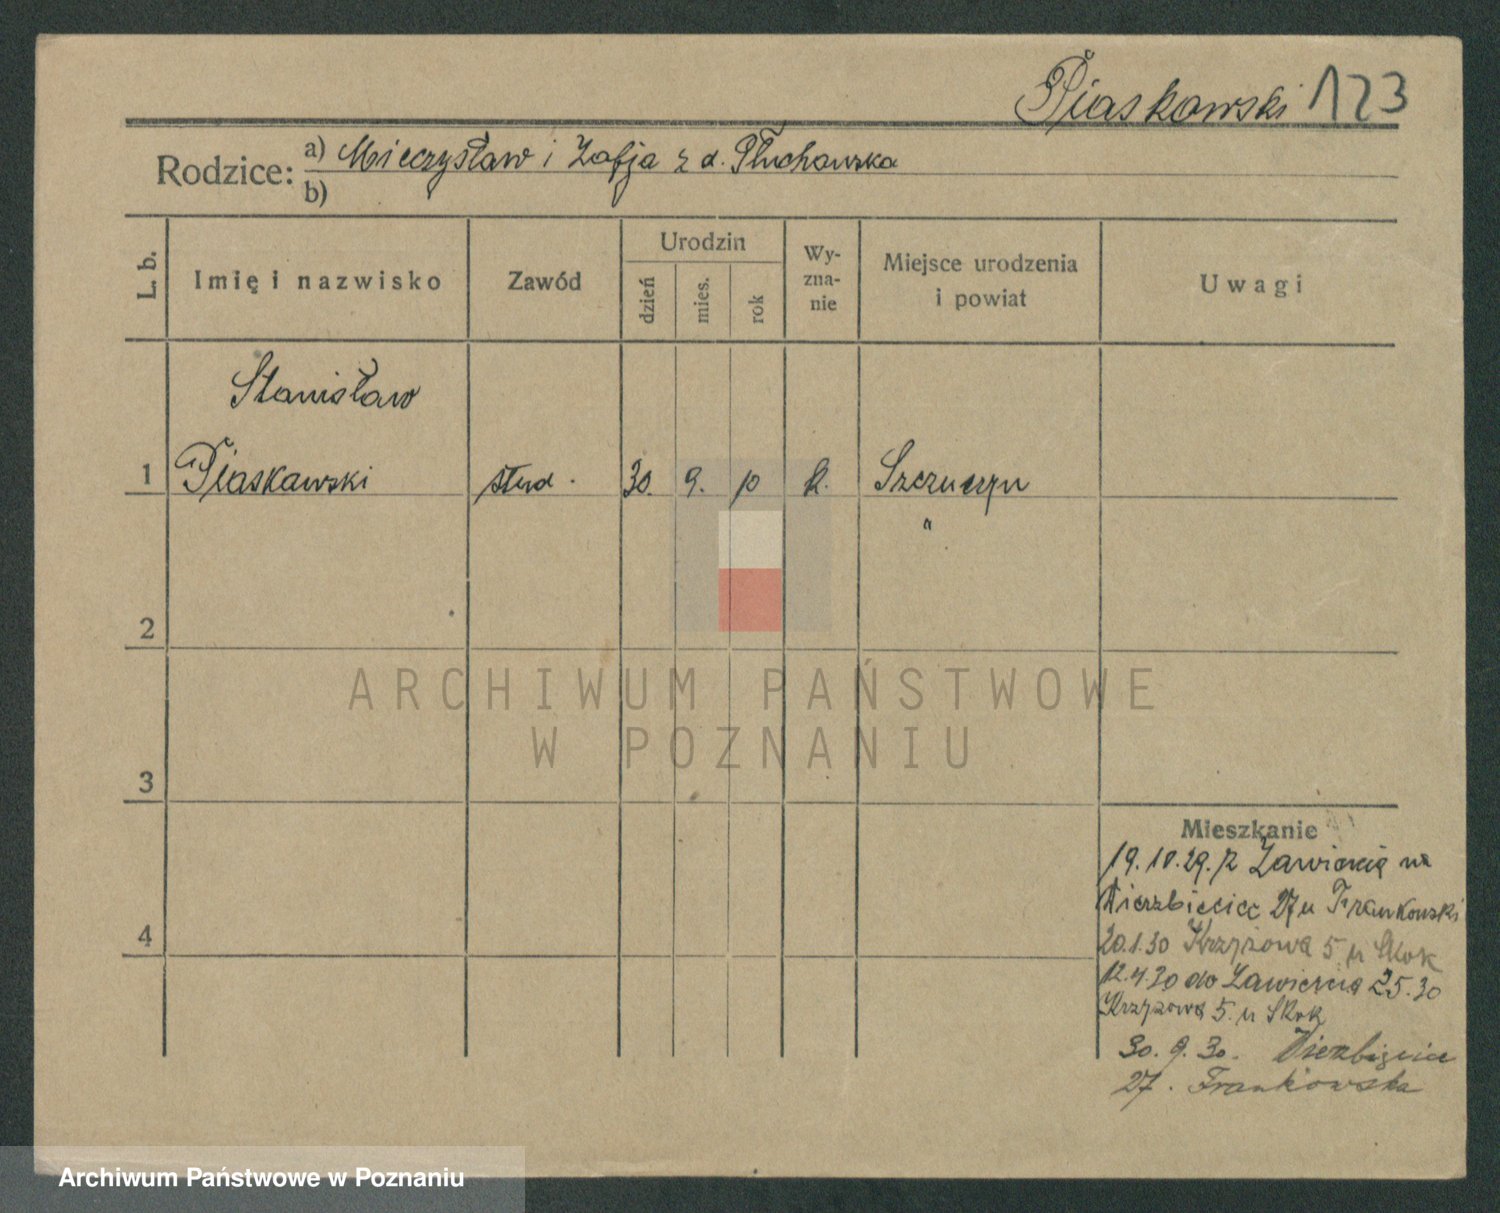 Piaskowski 123
Rodzice: a) Mieczysław i Zofja z d. Płuchowska
b)
L. b.
Imię i nazwisko
Zawód
Urodzin
dzień
mies.
rok
Wy-
zna-
nie
Miejsce urodzenia
i powiat
Uwagi
Stanisław
1 Piaskowski stud. 30. 9. 10 k. Szczuczyn
"
2
3
4
ARCHIWUM PAŃSTWOWE
W POZNANIU
Mieszkanie
19.10.29. z Zawiercia na
Wierzbięcice 27 u Frankowski
20.1.30 Krzyżowa 5 u Skok
12.4.30 do Zawiercia 2.5.30
Krzyżowa 5. u Skok
30. 9. 30. Wierzbięcice
27. Frankowska
Archiwum Państwowe w Poznaniu